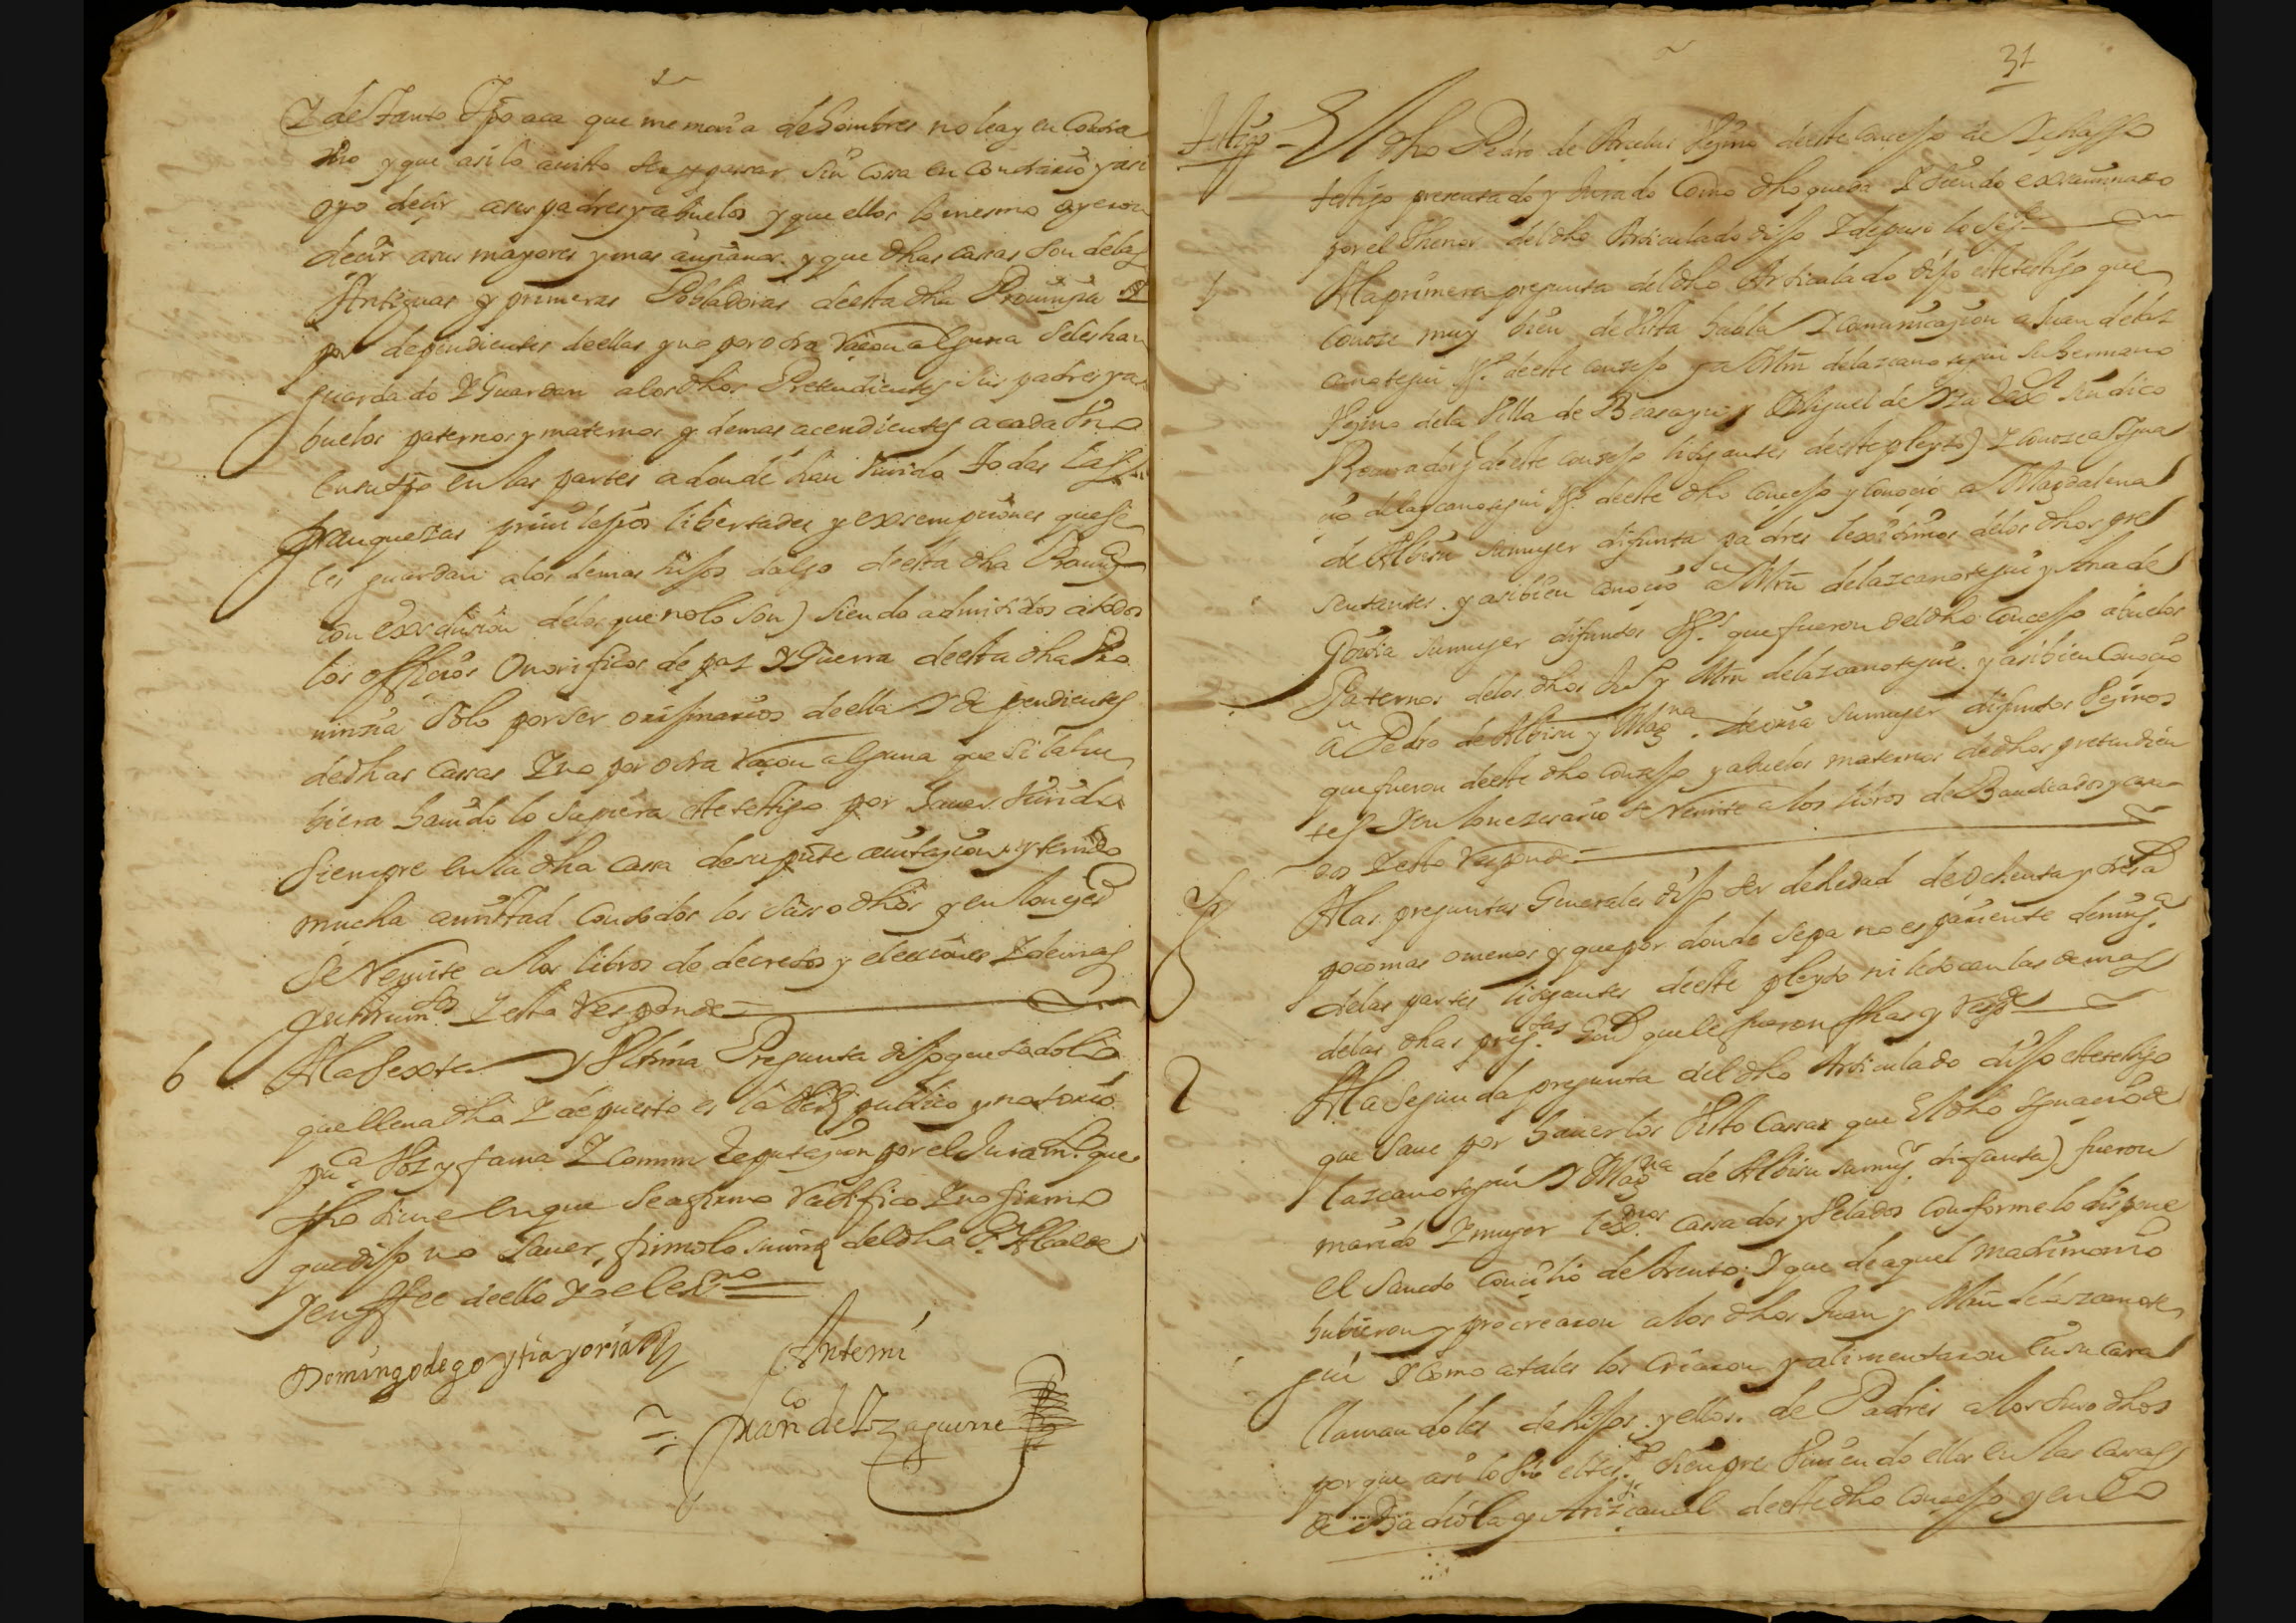 Y de Tanto Tpo aca que memoria de hombres no leay en Contra
rio y que asi lo auisto ser y passar sin Cossa en contrario y asi
oyo decir asus padres y abuelos y que ellos lo mesmo oyeron
decir asus mayores y mas ançianos. y que dhas cassas son delas
Antiguas y primeras Pobladoras de esta dha Prouinçia Y
por dependientes de ellas y no por otra Raçon alguna seles han
guardado Y Guardan alos dhos Pretendientes sus padres y a
buelos paternos y maternos y demas acendientes acada Vno
en su tpo en las partes adonde han Viuido Todas las
franquezas priuilejios libertades y exsempciones que se
les guardan alos demas hijos dalgo de esta dha Prouiª
con exsclusion delos que no lo son) siendo admitidos atodos
los officios Onorificos de paz Y Guerra de esta dha Pro
uinzia Solo por ser originarios de ella Y dependientes
de dhas Cassas Y no por otra Raçon alguna que si la hu
biera hauido lo supiera este testigo por hauer Viuido
Siempre en la dha Cassa de su pnte auitaçion y tenido
mucha amistad con todos los suso dhos y en lo neçesº
Se Remite a los libros de decretos y elecciones Y demas
ynstrumtos Y esto Responde =
6 A la sexta Y Vltima Pregunta dijo que todo lo
que lleua dho Y depuesto es la Verd publico y notorio
puca Voz y fama Y Comun Reputaçion por el Juramto que
fho tiene en que se afirmo Ratifico Y no firmo
que dijo no sauer, firmolo su mrd del dho Sr Alcalde
Y en ffee de ello Yo el esno
Domingo de goytia yoria
Antemi
Franco de Yzaguirre
31
Testigo - El dho Pedro de Arcelus Veçino de este Conçejo de Ychasso
testigo presentado y Jurado Como dho queda Y Siendo exsaminado
por el thenor del dho Articulado dijo Y depuso lo sigte
1 A la primera pregunta del dho Articulado dijo este testigo que
Conoze muy bien de Vista habla Y Comunicaçion a Juan de laz
canotegui Vº de este conçejo y a Mrn de lazcanotegui su hermano
Veçino de la Villa de Beasayn y Miguel de Sindico
Procurador de este conçejo litigantes de este pleyto) Y Conoze a Ygna
çio de lazcanotegui Vº de este dho Conçejo y Conocio a Magdalena
de Albisu su muger difunta padres lexitimos delos dhos pre
sentantes. y asi bien conocio a Mrn de lazcanotegui y Ana de
Gorria su muger difuntos Vºs que fueron del dho Conçejo abuelos
Paternos delos dhos Jun y Mrn de lazcanotegui. y asi bien Conocio
a Pedro de Albisu y Magna de su muger difuntos Veçinos
que fueron de este dho Conçejo y abuelos maternos de dhos pretendien
tes Y en lo nezesario se Remite a los libros de Bautizados y cassa
dos Y esto Responde =
A las preguntas Generales dijo ser de hedad de ochenta y tres as
poco mas o menos y que por donde sepa no es pariente de ninga
delas partes litigantes de este pleyto ni le tocan las demas
delas dhas pregtas Gens que le fueron fhas y Respde
2 A la segunda pregunta del dho Articulado dijo este testigo
que saue por hauerlos Visto Cassar que El dho Ygnacio de
lazcanotegui Y Magna de Albisu su mugr difunta) fueron
marido Y muger lexmos Cassados y Velados Conforme lo dispone
el Sancto Conçilio de trento. Y que de aquel matrimonio
hubieron y procrearon a los dhos Juan y Mrn de lazcanote
gui Y como a tales los Criaron y alimentaron en su Cassa
llamandoles de hijos. y ellos. de Padres a los suso dhos
porque asi lo Vio el tesº Siempre Viuiendo ellos en las Cassas
de Badiola y Arizcanal de este dho Conçejo y en lo